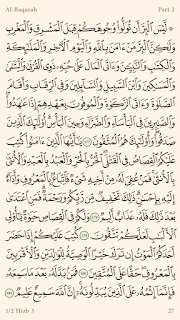 Al-Baqarah
Part 2
۞ لَّيْسَ ٱلْبِرَّ أَن تُوَلُّوا۟ وُجُوهَكُمْ قِبَلَ ٱلْمَشْرِقِ وَٱلْمَغْرِبِ
وَلَـٰكِنَّ ٱلْبِرَّ مَنْ ءَامَنَ بِٱللَّهِ وَٱلْيَوْمِ ٱلْـَٔاخِرِ وَٱلْمَلَـٰٓئِكَةِ
وَٱلْكِتَـٰبِ وَٱلنَّبِيِّـۧنَ وَءَاتَى ٱلْمَالَ عَلَىٰ حُبِّهِۦ ذَوِى ٱلْقُرْبَىٰ وَٱلْيَتَـٰمَىٰ
وَٱلْمَسَـٰكِينَ وَٱبْنَ ٱلسَّبِيلِ وَٱلسَّآئِلِينَ وَفِى ٱلرِّقَابِ وَأَقَامَ
ٱلصَّلَوٰةَ وَءَاتَى ٱلزَّكَوٰةَ وَٱلْمُوفُونَ بِعَهْدِهِمْ إِذَا عَـٰهَدُوا۟
وَٱلصَّـٰبِرِينَ فِى ٱلْبَأْسَآءِ وَٱلضَّرَّآءِ وَحِينَ ٱلْبَأْسِ أُو۟لَـٰٓئِكَ ٱلَّذِينَ
صَدَقُوا۟ وَأُو۟لَـٰٓئِكَ هُمُ ٱلْمُتَّقُونَ ١٧٧ يَـٰٓأَيُّهَا ٱلَّذِينَ ءَامَنُوا۟ كُتِبَ
عَلَيْكُمُ ٱلْقِصَاصُ فِى ٱلْقَتْلَى ٱلْحُرُّ بِٱلْحُرِّ وَٱلْعَبْدُ بِٱلْعَبْدِ وَٱلْأُنثَىٰ
بِٱلْأُنثَىٰ فَمَنْ عُفِىَ لَهُۥ مِنْ أَخِيهِ شَىْءٌ فَٱتِّبَاعٌۢ بِٱلْمَعْرُوفِ وَأَدَآءٌ
إِلَيْهِ بِإِحْسَـٰنٍ ذَٰلِكَ تَخْفِيفٌ مِّن رَّبِّكُمْ وَرَحْمَةٌ فَمَنِ ٱعْتَدَىٰ
بَعْدَ ذَٰلِكَ فَلَهُۥ عَذَابٌ أَلِيمٌ ١٧٨ وَلَكُمْ فِى ٱلْقِصَاصِ حَيَوٰةٌ يَـٰٓأُو۟لِى
ٱلْأَلْبَـٰبِ لَعَلَّكُمْ تَتَّقُونَ ١٧٩ كُتِبَ عَلَيْكُمْ إِذَا حَضَرَ
أَحَدَكُمُ ٱلْمَوْتُ إِن تَرَكَ خَيْرًا ٱلْوَصِيَّةُ لِلْوَٰلِدَيْنِ وَٱلْأَقْرَبِينَ
بِٱلْمَعْرُوفِ حَقًّا عَلَى ٱلْمُتَّقِينَ ١٨٠ فَمَنۢ بَدَّلَهُۥ بَعْدَ مَا سَمِعَهُۥ
فَإِنَّمَآ إِثْمُهُۥ عَلَى ٱلَّذِينَ يُبَدِّلُونَهُۥٓ إِنَّ ٱللَّهَ سَمِيعٌ عَلِيمٌ ١٨١
1/2 Hizb 3
27